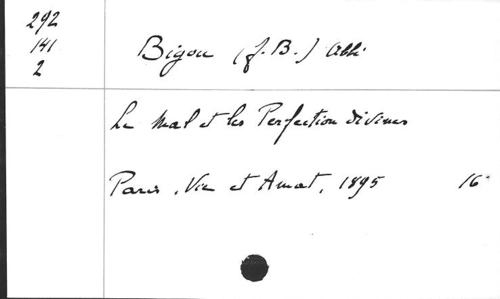 292
141
2
Bigou (J. B.) Abbé
Le Mal et les Perfection divines
Paris, Vic et Amat, 1895 16°